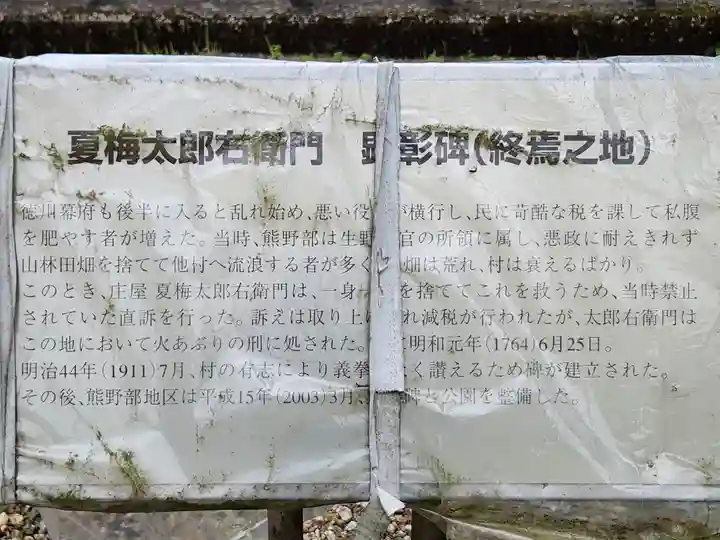 夏梅太郎右衛門 顕彰碑(終焉之地)
徳川幕府も後半に入ると乱れ始め、悪い役 が横行し、民に苛酷な税を課して私腹
を肥やす者が増えた。当時、熊野部は生野 官の所領に属し、悪政に耐えきれず
山林田畑を捨てて他村へ流浪する者が多く 畑は荒れ、村は衰えるばかり。
このとき、庄屋 夏梅太郎右衛門は、一身 を捨ててこれを救うため、当時禁止
されていた直訴を行った。訴えは取り上げ れ減税が行われたが、太郎右衛門は
この地において火あぶりの刑に処された。 に明和元年(1764)6月25日。
明治44年(1911)7月、村の有志により義挙 く讃えるため碑が建立された。
その後、熊野部地区は平成15年(2003)3月、 碑と公園を整備した。